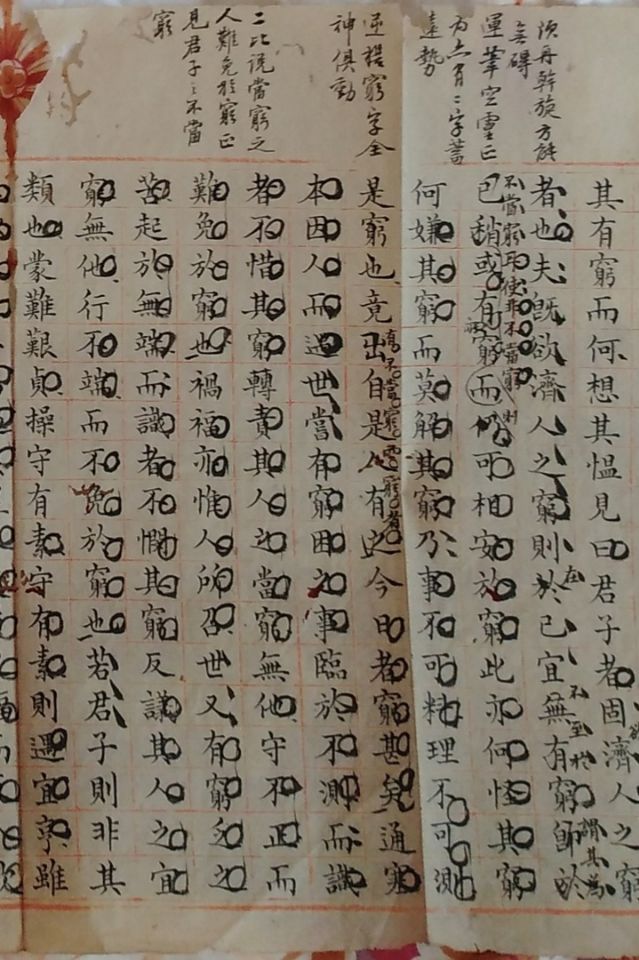 須再斡旋方能
無碍
運筆空靈正
為六月二字蓄
遠勢
窮字全
神俱動
二比說當窮之
人難免於窮正
見君子之不當
窮
其有窮而何想其慍見曰君子者固濟人之窮
者也夫既欲濟人之窮則於己宜無有窮
不當窮耶使非不當窮則
在
不至於
謂其為
已稍或有窮而何可相安於窮此亦何怪其窮
何嫌其窮而莫解其窮乃事不可料理不可測
是窮也竟出自是人有之今日者窮甚矣通塞
本因人而遇世嘗有窮困之事臨於不測而識
者不惜其窮轉責其人之當窮無他守不正而
難免於窮也禍福亦惟人所召世又有窮乏之
苦起於無端而識者不憫其窮反謙其人之宜
窮無他行不端而不免於窮也若君子則非其
類也蒙難艱貞操守有素守有素則遇宜亨雖